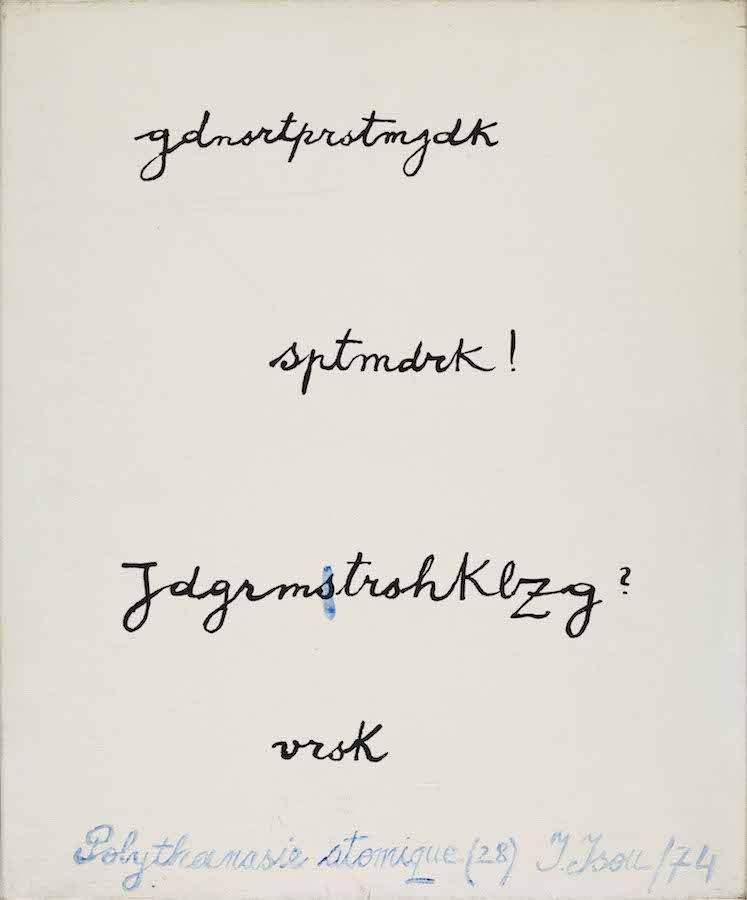 gdnsrtprstmjdk
sptmdrk !
JdgrmstrshKlZg ?
vrsK
Polythanasie atomique (28) I. Isou /74